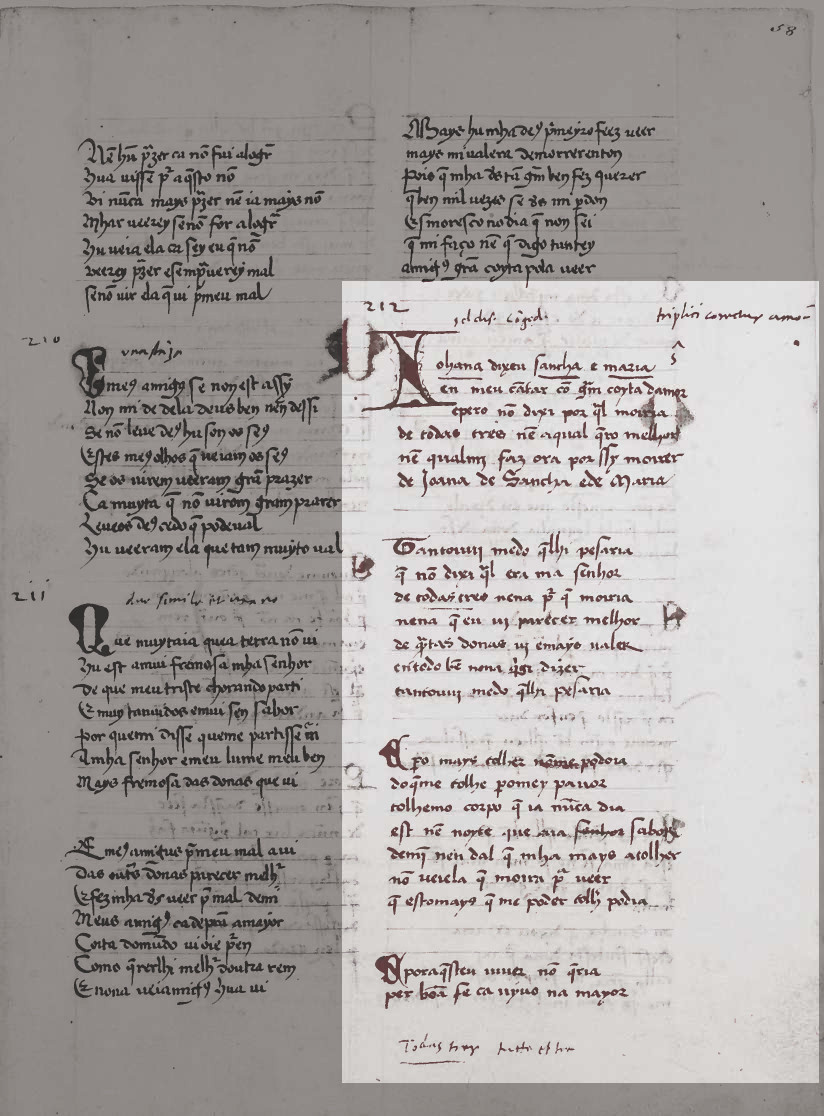 58
Nē hūū p̄zer ca nō fui alogr̄
Hua uisse pr̄ aq̄sto nō
Vi nūca mays p̄zer nē ia mays nō
Mhar ueerey senō for alogr̄
Hu ueia ela ca sey eu q̄ nō
veerey p̄zer e semp̄ uerey mal
senō uir ela q̄ ui p̄meu mal
210
una stā̄ja
meꝯ amigꝯ se non est assy
Non mi de dela deus ben nē dessi
Se nō leue deꝯ hu son os seꝯ
Estes meꝯ olhos q̄ ueiam os seꝯ
Se os uirem ueeram grā prazer
Ca muyta q̄ nō uirom gram prazer
Leueos deꝯ cedo q̄ pode ual
Hu ueeram ela que tam muyto ual
211
Que muytaia quea terra nō ui
Hu est amui fremosa mha senhor
De que meu triste chorando parti
E muy tanuidos emui sen sabor
Por quem disse queme partisse mi
Amha senhor emeu lume meu ben
Mays fremosa das donas que ui
E meꝯ amigus p̄meu mal a ui
Das outrs donas parecer melhr
E fez mha ds ueer p̄ mal demi
Meus amigꝯ ca de prā amayor
Coita domūdo ui oie p̄en
Como q̄rerlhi melhr doutra rem
E nona ueia migꝯ hua ui
Mays hu mha deꝯ p̄meyro feez ueer
mays mi ualera de morrer enton
Pois q̄ mha ds tā grm ben fez querer
q̄ ben mil uezes se ds mi pdon
Esmoresco no dia q̄ non sei
q̄ mi faço nē q̄ digo tantey
amigꝯ grā coyta pola ueer
212
triplici conectur amor
Nohana dixeu sancha e maria
en meu cātar cō grm coyta damor
e pero nō dixi por q̄l moiria
de todas tres nē aqual q̄ro melhor
nē qualmi faz ora por ssy morrer
de Joana de Sancha e de Maria
Tantouui medo q̄lhi pesaria
q̄ nō dixi q̄l era ma senhor
de todas tres nena pr̄ q̄ moiria
nena q̄ eu ui parecer melhor
de q̄tas donas ui e mays ualer
en todo bē nena q̄gi dizer
tantouui medo q̄lhi pesaria
E pero mays tolher nōme podoria
do q̄me tolhe p̄omey pauor
tolhemo corpo q̄ ia nūca dia
est nē noyte que aia senhor sabor
demi nen dal q̄ mha mays a tolher
nō ueiela q̄ moiri pr̄ ueer
q̄ esto mays q̄ me poder tolhr podia
E por aq̄steu uiuer nō q̄ria
per boā fe ca uyuo na mayor
Tobas trey